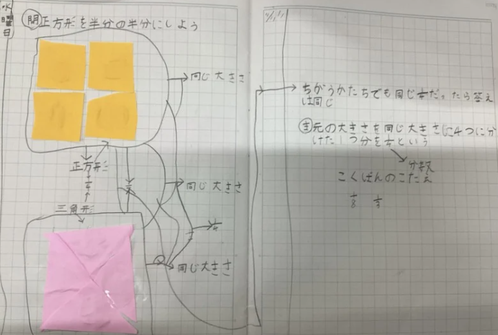 水曜日
問 正方形を半分の半分にしよう
同じ大きさ
正方形
三角形
同じ大きさ
同じ大きさ
ちがうかたちでも同じ だったら答え
は同じ
ま 元の大きさを同じ大きさに4つにわ
けた1つ分を という
分数
こくばんのこたえ